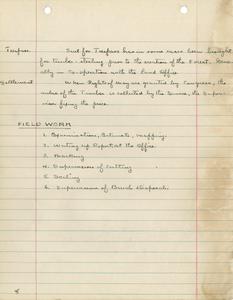 Trespass. Suit for Trespass has in some cases been brought
for timber stealing prior to the creation of the Forest. Usually
in Co-operation with the Land Office.
Settlement When Rights of way are granted by Congress, the
value of the Timber is collected by the Service, the Supervisor
fixing the price.
FIELD WORK
1. Examination, Estimate, mapping.
2. Writing up Report at the Office.
3. Marking
4. Supervision of Cutting
5. Scaling
6. Supervision of Brush Disposal.